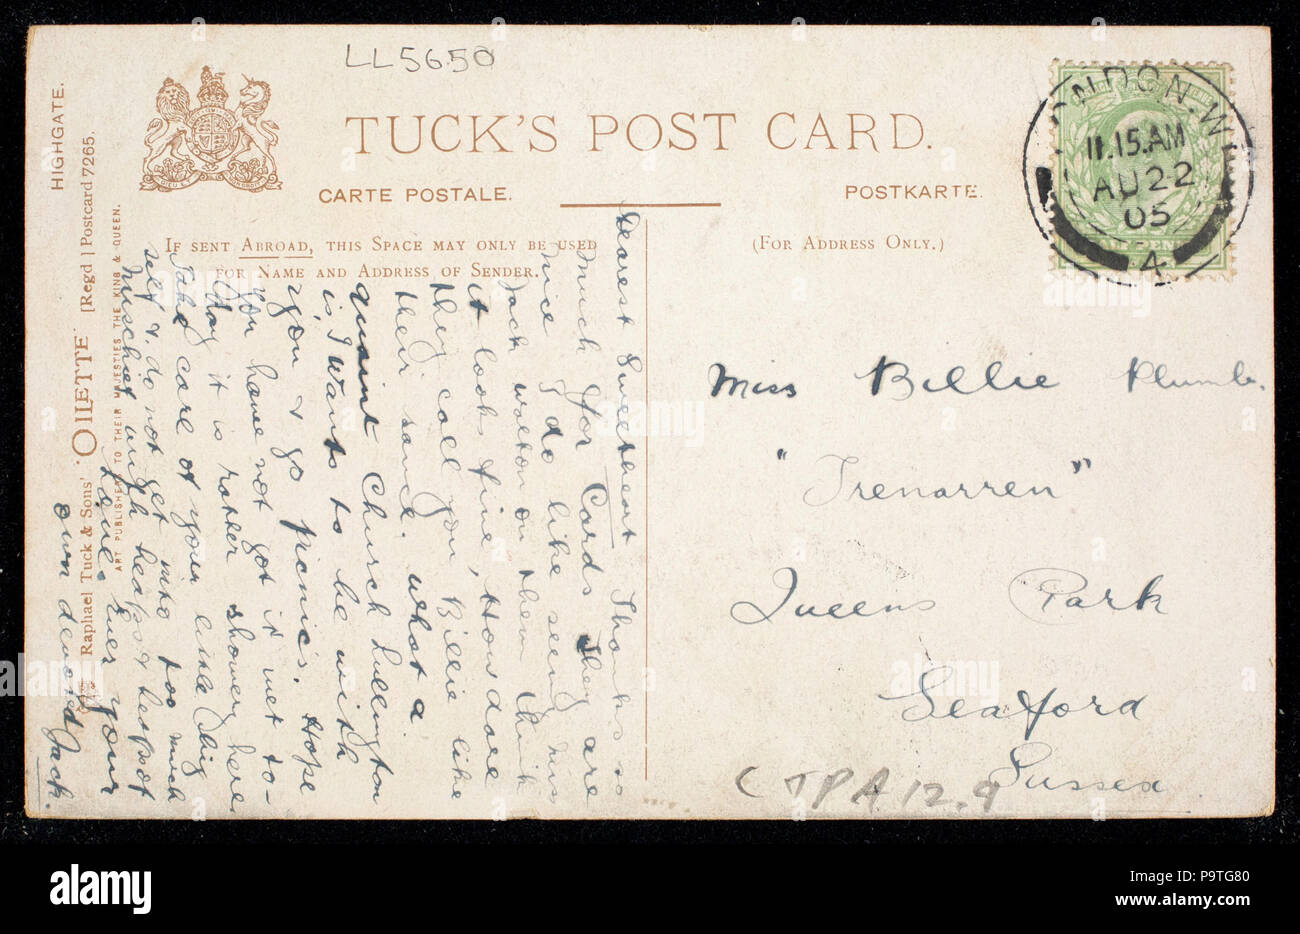 LL5650
TUCK'S POST CARD.
CARTE POSTALE.
POSTKARTE.
IF SENT ABROAD, THIS SPACE MAY ONLY BE USED
FOR NAME AND ADDRESS OF SENDER.
(FOR ADDRESS ONLY.)
HIGHGATE.
Raphael Tuck & Sons' "OILETTE" [Regd] Postcard 7265.
ART PUBLISHERS TO THEIR MAJESTIES THE KING & QUEEN.
LONDON.W
11.15.AM
AU 22
05
4
Dearest Sweetheart Thanks so
much for Cards they are
nice I do like seeing Miss
Jack walton on them think
it looks fine, How dare
they call you Billie like
their sauce. what a
quaint Church Lullington
is, I wants to be with
you & go picnics. Hope
you have not got it wet to-
day it is rather showery here.
Take care of your little
self & do not get into too much
mischief with heaps & heaps of
Love. Ever your
own devoted Jack.
Miss Billie Plumb.
"Trenarren"
Queens Park
Seaford
Sussex
CTPA12.9
alamy
Image ID: P9TG80
www.alamy.com